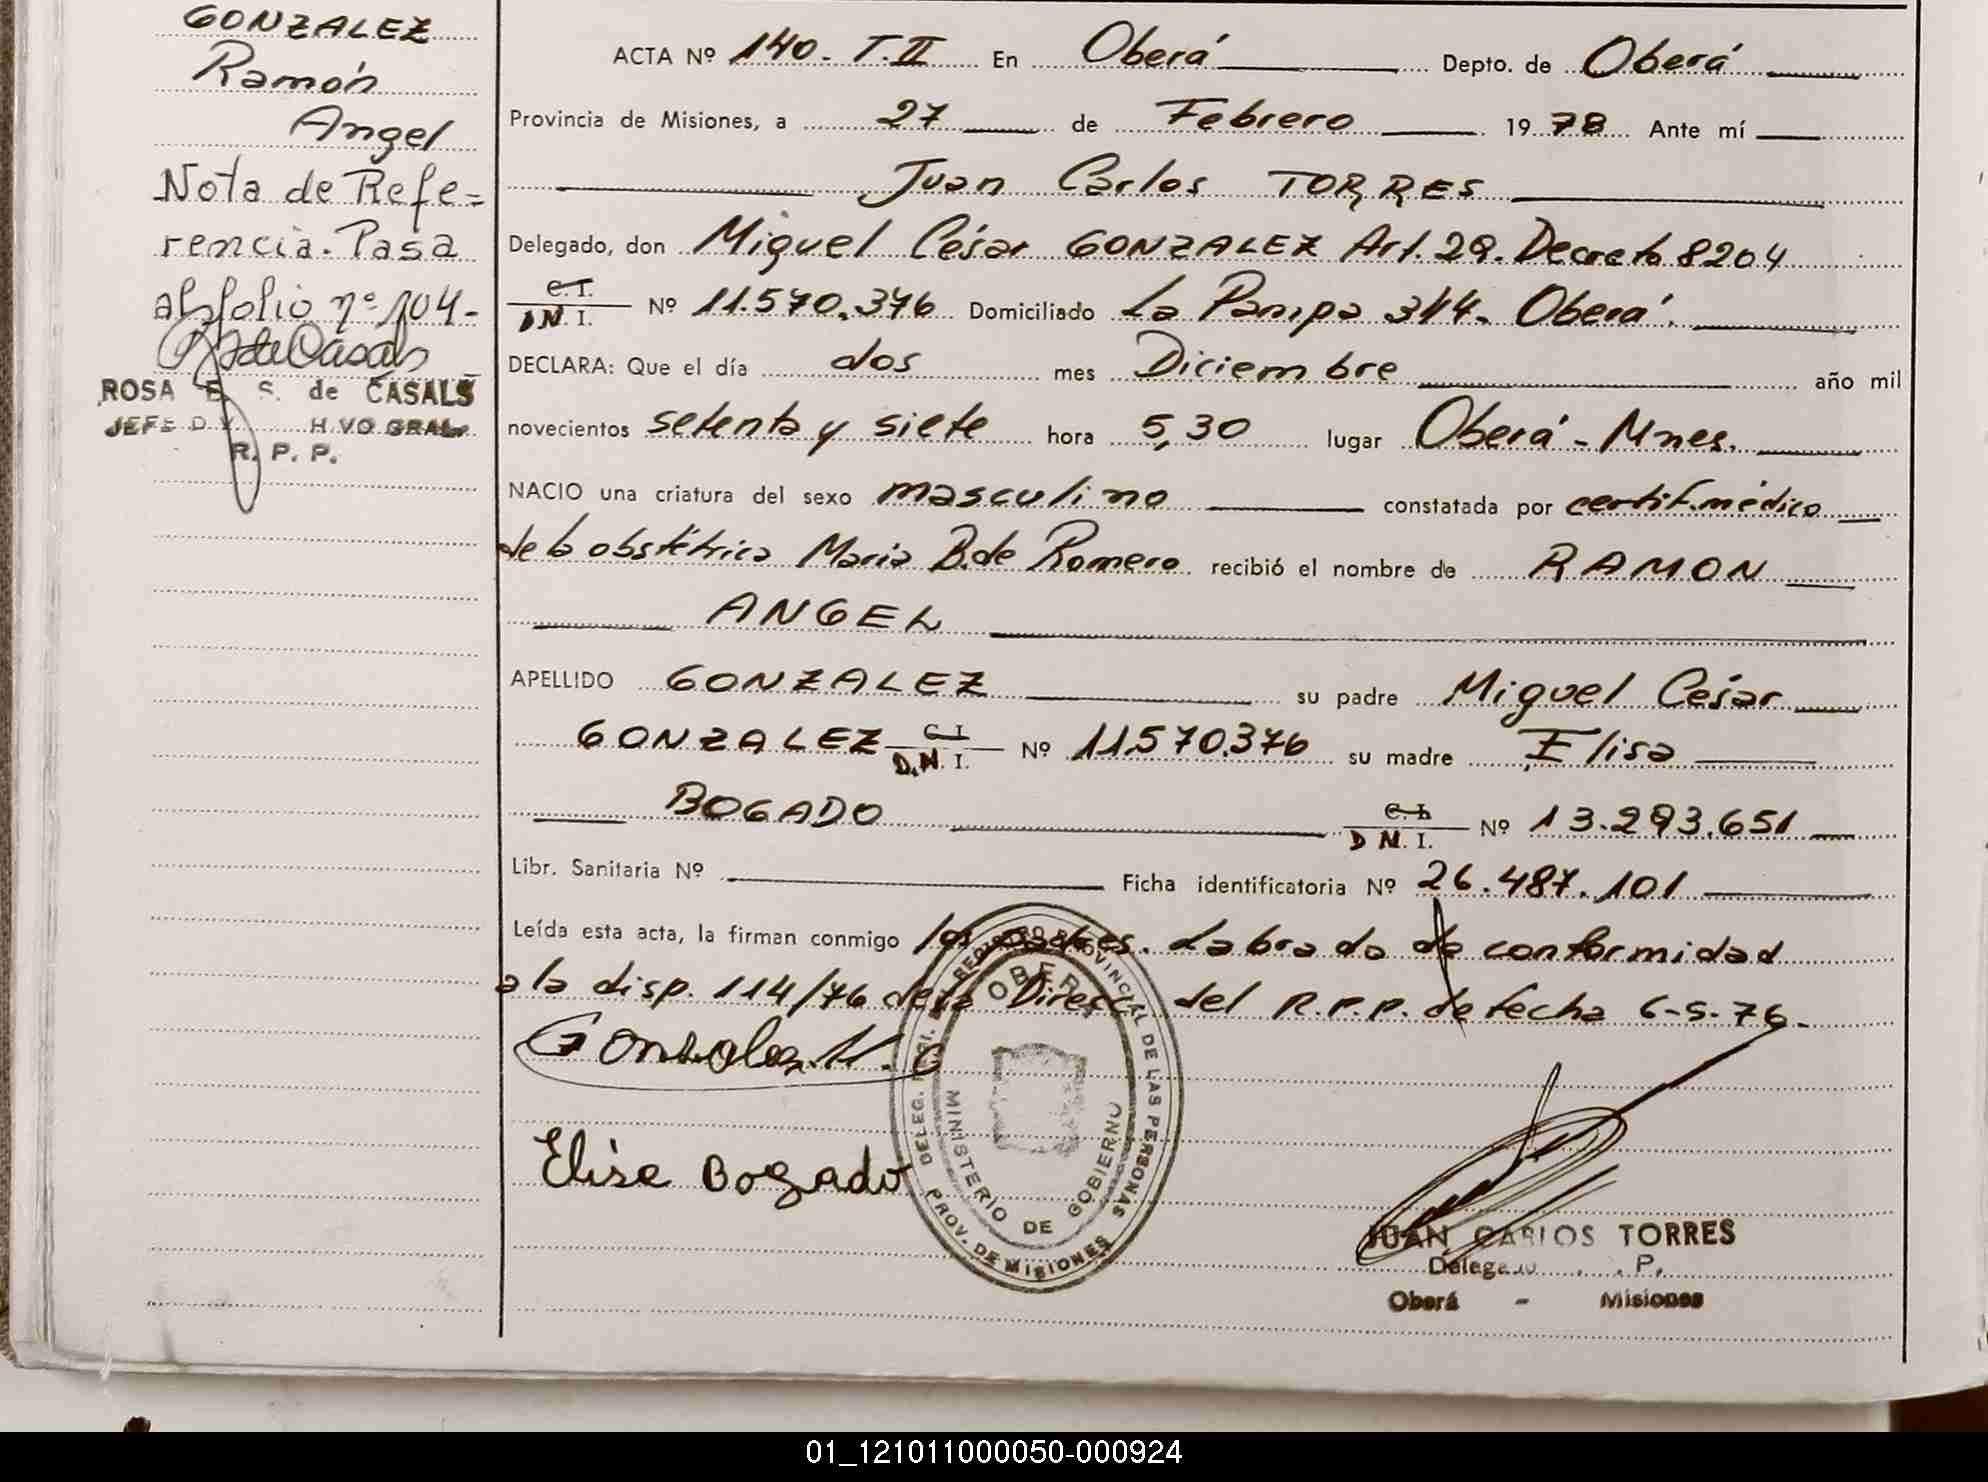 GONZALEZ
Ramón
Angel
Nota de Refe-
rencia. Pasa
al folio nº 104-
ROSA E. S. de CASALS
JEFE D H VO GRAL
R. P. P.
ACTA Nº 140. T. II En Oberá Depto. de Oberá
Provincia de Misiones, a 27 de Febrero 19 78 Ante mí
Juan Carlos TORRES
Delegado, don Miguel César GONZALEZ Art. 29. Decreto 8204
C.I.
D N. I. Nº 11.570.376 Domiciliado La Pampa 314. Oberá.
DECLARA: Que el día dos mes Diciembre año mil
novecientos setenta y siete hora 5,30 lugar Oberá - Mnes.
NACIO una criatura del sexo masculino constatada por certif. médico
de la obstétrica María B. de Romero recibió el nombre de RAMON
ANGEL
APELLIDO GONZALEZ su padre Miguel César
GONZALEZ C I
D. N. I. Nº 11.570.376 su madre Elisa
BOGADO C.I.
D N. I. Nº 13.293.651
Libr. Sanitaria Nº Ficha identificatoria Nº 26.487.101
Leída esta acta, la firman conmigo los padres. Labrada de conformidad
a la disp. 114/76 de la Direcc. del R.P.P. de fecha 6-5-76.
Gonzalez M. C
Elisa Bogado
REGISTRO PROVINCIAL DE LAS PERSONAS
DELEG.
PROV. DE MISIONES
OBERA
MINISTERIO DE GOBIERNO
JUAN CARLOS TORRES
Delegado P.
Oberá - Misiones
01_121011000050-000924